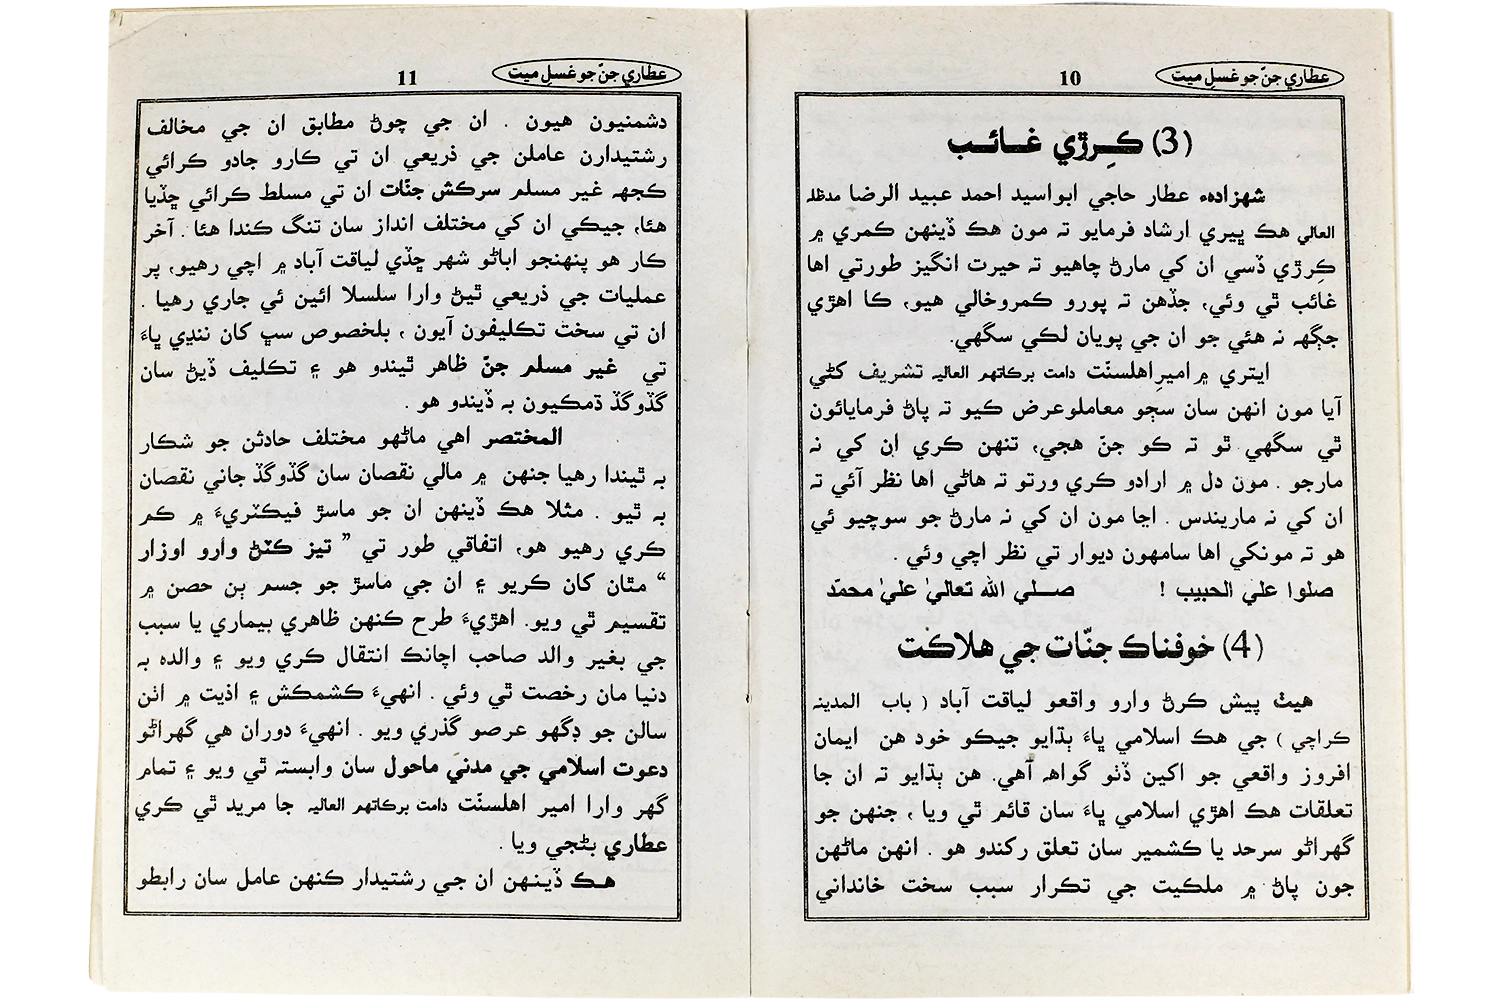 عطاري جنّ جو غسلِ ميت
10
(3) ڪِرڙي غائب
شهزادهء عطار حاجي ابواسيد احمد عبيد الرضا مدظله
العالي هڪ ڀيري ارشاد فرمايو ته مون هڪ ڏينهن ڪمري ۾
ڪِرڙي ڏسي ان کي مارڻ چاهيو ته حيرت انگيز طورتي اها
غائب ٿي وئي، جڏهن ته پورو ڪمروخالي هيو، ڪا اهڙي
جڳهه نه هئي جو ان جي پويان لڪي سگهي.
ايتري ۾ اميرِاهلسنّت دامت برڪاتهم العاليه تشريف کڻي
آيا مون انهن سان سڄو معاملوعرض ڪيو ته پاڻ فرمايائون
ٿي سگهي ٿو ته ڪو جنّ هجي، تنهن ڪري ان کي نه
مارجو . مون دل ۾ ارادو ڪري ورتو ته هاڻي اها نظر آئي ته
ان کي نه ماريندس . اڃا مون ان کي نه مارڻ جو سوچيو ئي
هو ته مونکي اها سامهون ديوار تي نظر اچي وئي .
صلوا علي الحبيب ! صلي الله تعاليٰ عليٰ محمّد
(4) خوفناڪ جنّات جي هلاڪت
هيٺ پيش ڪرڻ وارو واقعو لياقت آباد ( باب المدينه
ڪراچي ) جي هڪ اسلامي ڀاءَ ٻڌايو جيڪو خود هن ايمان
افروز واقعي جو اکين ڏٺو گواهه آهي. هن ٻڌايو ته ان جا
تعلقات هڪ اهڙي اسلامي ڀاءَ سان قائم ٿي ويا ، جنهن جو
گهراڻو سرحد يا ڪشمير سان تعلق رکندو هو . انهن ماڻهن
جون پاڻ ۾ ملڪيت جي تڪرار سبب سخت خانداني
عطاري جنّ جو غسلِ ميت
11
دشمنيون هيون . ان جي چوڻ مطابق ان جي مخالف
رشتيدارن عاملن جي ذريعي ان تي ڪارو جادو ڪرائي
ڪجهه غير مسلم سرڪش جنّات ان تي مسلط ڪرائي ڇڏيا
هئا، جيڪي ان کي مختلف انداز سان تنگ ڪندا هئا . آخر
ڪار هو پنهنجو اباڻو شهر ڇڏي لياقت آباد ۾ اچي رهيو، پر
عمليات جي ذريعي ٿيڻ وارا سلسلا ائين ئي جاري رهيا .
ان تي سخت تڪليفون آيون ، بلخصوص سڀ کان ننڍي ڀاءَ
تي غير مسلم جنّ ظاهر ٿيندو هو ۽ تڪليف ڏيڻ سان
گڏوگڏ ڌمڪيون به ڏيندو هو .
المختصر اهي ماڻهو مختلف حادثن جو شڪار
به ٿيندا رهيا جنهن ۾ مالي نقصان سان گڏوگڏ جاني نقصان
به ٿيو . مثلا هڪ ڏينهن ان جو ماسڙ فيڪٽريءَ ۾ ڪم
ڪري رهيو هو، اتفاقي طور تي ” تيز ڪٽڻ وارو اوزار
“ مٿان کان ڪريو ۽ ان جي ماسڙ جو جسم ٻن حصن ۾
تقسيم ٿي ويو. اهڙيءَ طرح ڪنهن ظاهري بيماري يا سبب
جي بغير والد صاحب اچانڪ انتقال ڪري ويو ۽ والده به
دنيا مان رخصت ٿي وئي . انهيءَ ڪشمڪش ۽ اذيت ۾ اٺن
سالن جو ڊگهو عرصو گذري ويو . انهيءَ دوران هي گهراڻو
دعوت اسلامي جي مدني ماحول سان وابسته ٿي ويو ۽ تمام
گهر وارا امير اهلسنّت دامت برڪاتهم العاليه جا مريد ٿي ڪري
عطاري بڻجي ويا .
هڪ ڏينهن ان جي رشتيدار ڪنهن عامل سان رابطو